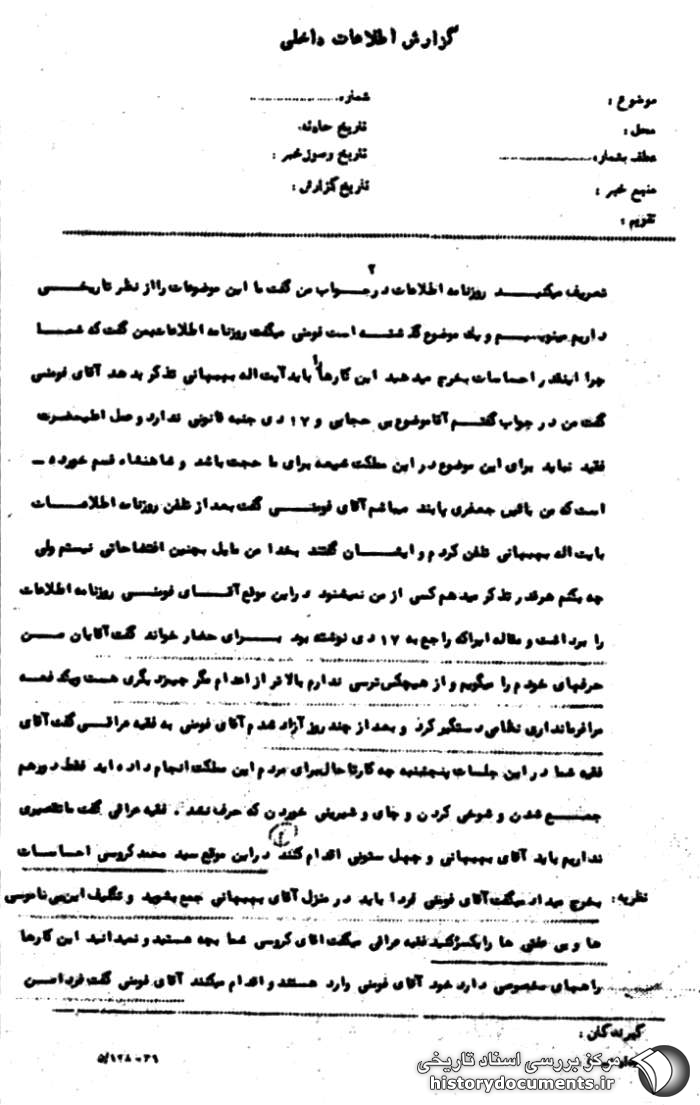 گزارش اطلاعات داخلی
موضوع :
شماره
محل :
تاریخ حادثه
عطف بشماره
تاریخ وصول خبر :
منبع خبر :
تاریخ گزارش :
تقویم :
۲
تعریف میکنید روزنامه اطلاعات در جواب من گفت ما این موضوعات را از نظر تاریخی
داریم مینویسیم و یك موضوع گذشته است فومنی میگفت روزنامه اطلاعات بمن گفت که شما
چرا اینقدر احساسات بخرج میدهید این کارها را باید آیت اله بهبهانی تذکر بدهد آقای فومنی
گفت من در جواب گفتم آقا موضوع بی حجابی و ۱۷ دی جنبه قانونی ندارد و عمل اعلیحضرت
فقید نباید برای این موضوع در این مملکت شیعه برای ما حجت باشد و شاهنشاه قسم خورده ـ
است که من بائین جعفری پابند میباشم آقای فومنی گفت بعد از تلفن روزنامه اطلاعات
بایت اله بهبهانی تلفن کردم و ایشان گفتند بخدا من مایل بچنین افتضاحاتی نیستم ولی
چه بکنم هرقدر تذکر میدهم کسی از من نمیشنود در این موقع آقای فومنی روزنامه اطلاعات
را برداشت و مقاله ایراکه راجع به ۱۷ دی نوشته بود برای حضار خواند گفت آقایان من
حرفهای خودم را میگویم و از هیچکس ترسی ندارم بالاتر از اعدام مگر چیز دیگری هست ویکدفعه
مرا فرمانداری نظامی دستگیر کرد و بعد از چند روز آزاد شدم آقای فومنی به فقیه عراقی گفت آقای
فقیه شما در این جلسات پنجشنبه چه کار تا حال برای مردم این مملکت انجام داده اید فقط دورهم
جمع شدن و شوخی کردن و چای و شیرینی خوردن که حرف نشد . فقیه عراقی گفت ما تقصیری
نداریم باید آقای بهبهانی و چهل ستونی اقدام کنند در این موقع سید محمد کروسی احساسات
نظریه :
بخرج میداد میگفت آقای فومنی فردا باید در منزل آقای بهبهانی جمع بشوید و تکلیف این بی ناموسی
ها و بی عفتی ها را یکسره کنید فقیه عراقی میگفت اقای کروسی شما بچه هستید و نمیدانید این کارها
راههای مخصوصی دارد خود آقای فومنی وارد هستند و اقدام میکنند آقای فومنی گفت فردا من
گیرندگان :
مرکز بررسی اسناد تاریخی
historydocuments.ir